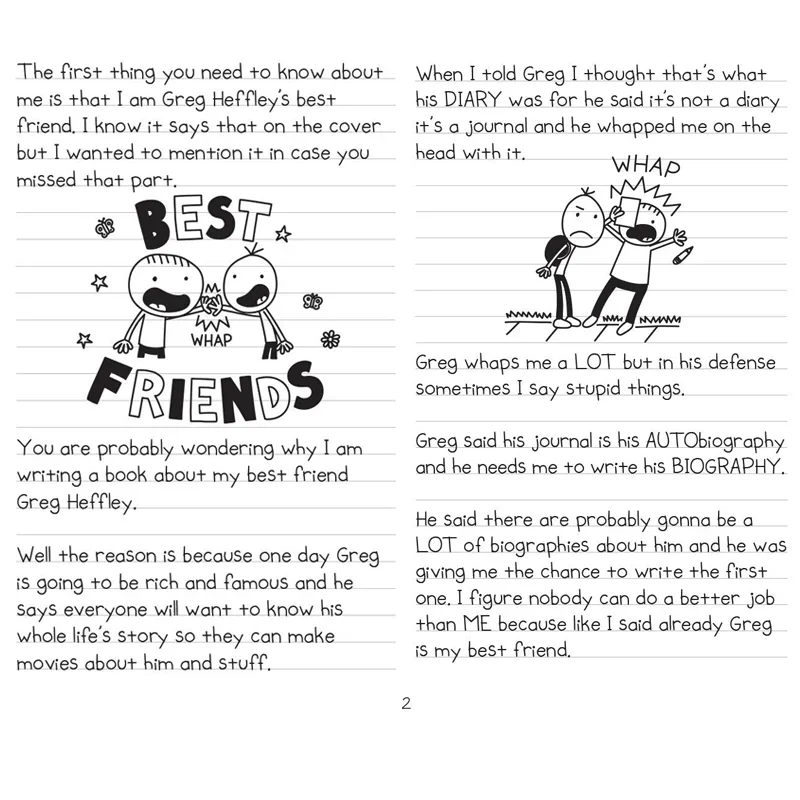 The first thing you need to know about
me is that I am Greg Heffley's best
friend. I know it says that on the cover
but I wanted to mention it in case you
missed that part.
BEST
WHAP
FRIENDS
You are probably wondering why I am
writing a book about my best friend
Greg Heffley.
Well the reason is because one day Greg
is going to be rich and famous and he
says everyone will want to know his
whole life's story so they can make
movies about him and stuff.
When I told Greg I thought that's what
his DIARY was for he said it's not a diary
it's a journal and he whapped me on the
head with it.
WHAP
Greg whaps me a LOT but in his defense
sometimes I say stupid things.
Greg said his journal is his AUTObiography
and he needs me to write his BIOGRAPHY.
He said there are probably gonna be a
LOT of biographies about him and he was
giving me the chance to write the first
one. I figure nobody can do a better job
than ME because like I said already Greg
is my best friend.
2